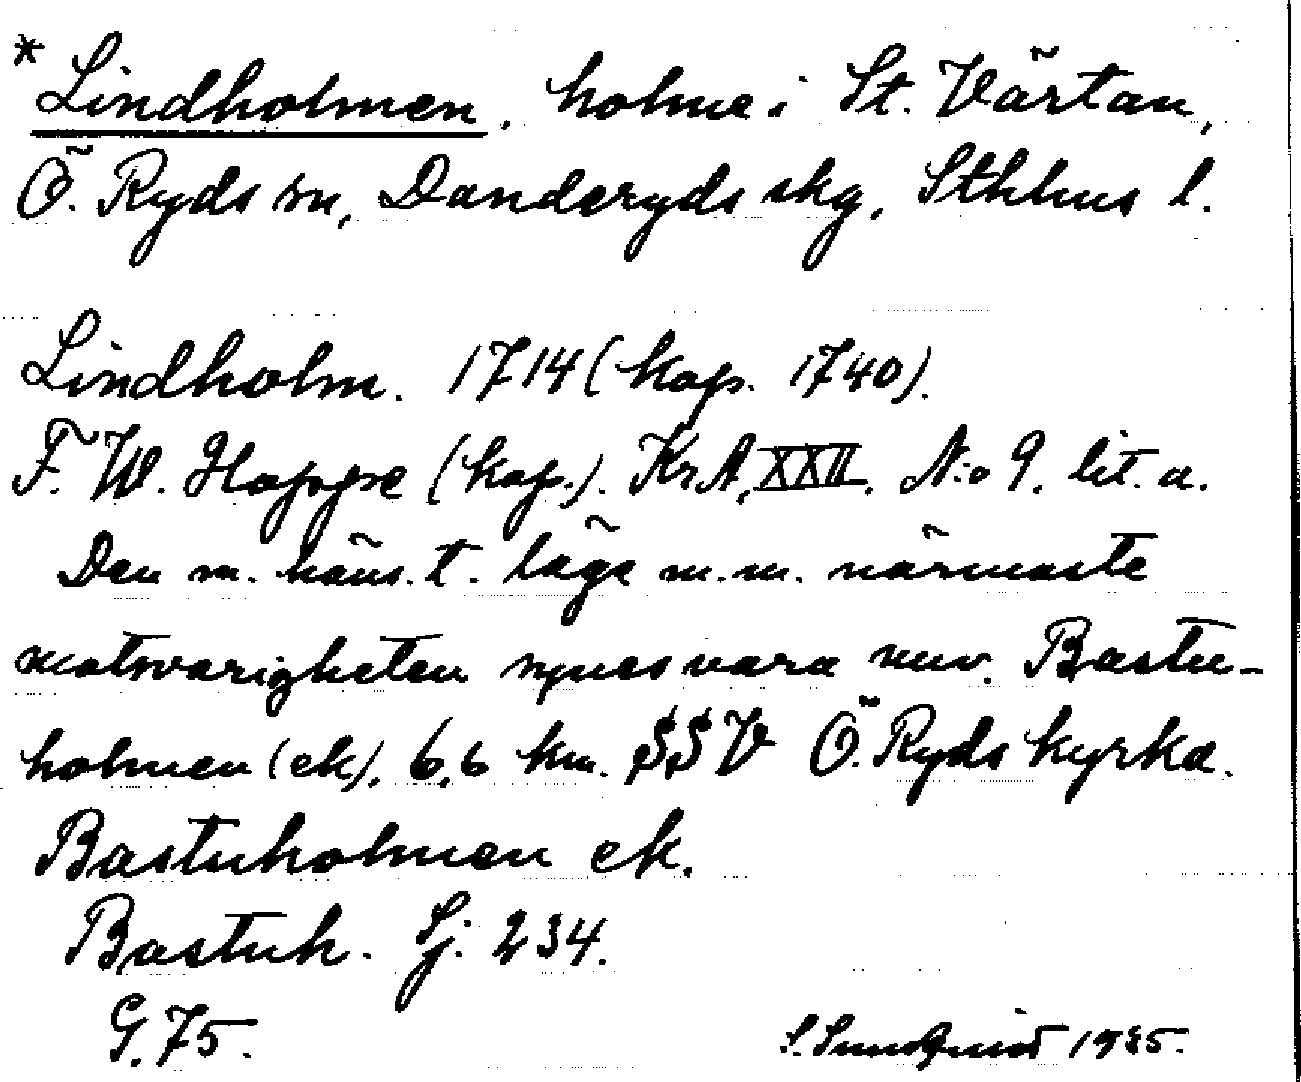 * Lindholmen, holme i St. Värtan,
Ö. Ryds sn, Danderyds skg, Sthlms l.
Lindholm. 1714 (kop. 1740).
F. W. Hoppe (kop.). KrA, XXII. N:o 9. lit. a.
Den m. häns. t. läge m.m. närmaste
motsvarigheten synes vara nuv. Bastu-
holmen (ek), 6,6 km. SSV Ö. Ryds kyrka.
Bastuholmen ek.
Bastuh. Sj. 234.
G. 75. S. Sundqvist 1935.